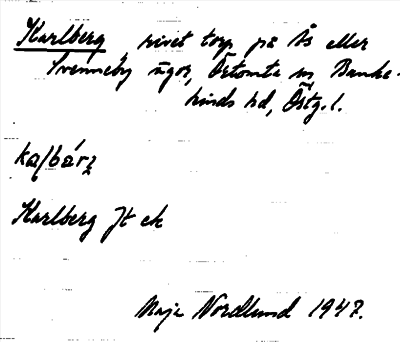 Karlberg, rivet torp på Ås eller
Svenneby ägor, Östomta sn, Banke-
kinds hd, Östg. l.
ka/bárg
Karlberg Jt ek
Maja Nordlund 1947.